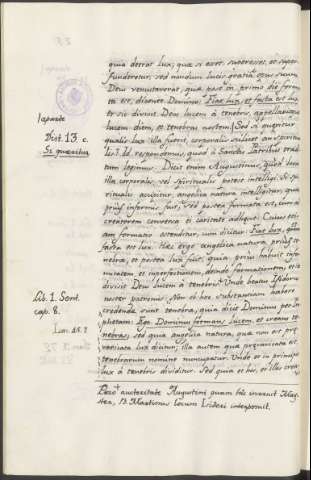 quia deerat lux, quæ si esset, superesset, et super-
funderetur, sed nondum lucis gratiâ opus suum
Deus venustaverat, quæ postea in primo die forma-
ta est, dicente Domino: Fiat lux, et facta est lux,
et sic divisit Deus lucem à tenebris, appellavitque
lucem diem, et tenebras noctem. Sed si quæritur
qualis lux illa fuerit, corporalis scilicet an spiritua-
lis? Id respondemus, quod à Sanctis Patribus tradi-
tum legimus. Dicit enim Augustinus, quod lux
illa corporalis, vel spiritualis potest intelligi. Si spi-
ritualis accipitur, angelica natura intelligitur, quæ
prius informis fuit, sed postea formata est, cum ad
creatorem conversa ei caritate adhæsit. Cujus etiam
formatio ostenditur, cum dicitur: Fiat lux,
facta est lux. Hæc ergo angelica natura prius te-
nebræ, et postea lux fuit, quia prius habuit infor-
mitatem et imperfectionem, deinde formationem, et ita
divisit Deus lucem à tenebris. Unde beatus Isidorus
noster patronus. Non ex hoc substantiam habere
credendæ sunt tenebræ, quia dicit Dominus per Pro-
phetam: Ego Dominus formans lucem, et creans te-
nebras, sed quia angelica natura, quæ non est præ-
varicata lux dicitur, illa autem quæ prævaricata est,
tenebrarum nomine nuncupatur. Unde et in principio
lux à tenebris dividitur. Sed quia et hos, et illos creavit
auctoritate Augustini quam hic invenit Magis-
ter, B. Martinus locum Isidori interponit.
Dist. 13. c.
Si quæritur
Lib. 1. Sent.
cap. 8.